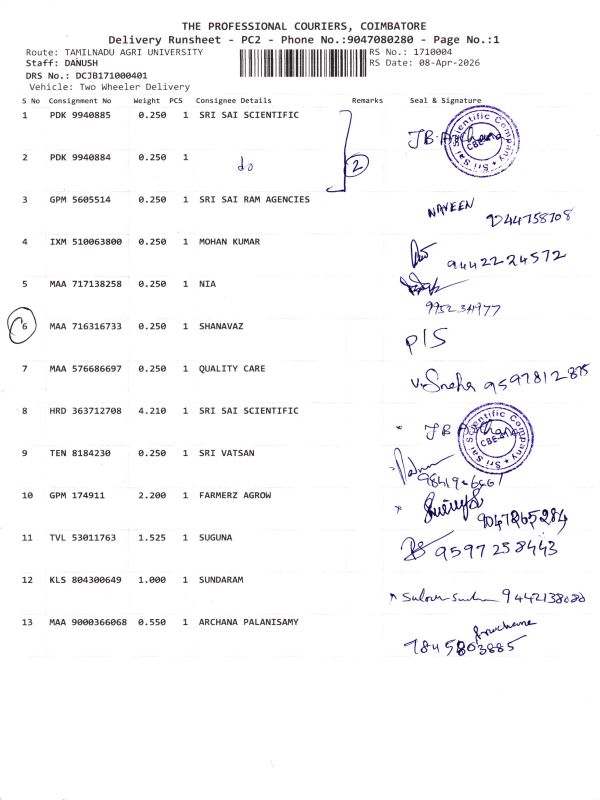 THE PROFESSIONAL COURIERS, COIMBATORE
Delivery Runsheet - PC2 - Phone No.:9047080280 - Page No.:1
Route: TAMILNADU AGRI UNIVERSITY RS No.: 1710004
Staff: DANUSH RS Date: 08-Apr-2026
DRS No.: DCJB171000401
Vehicle: Two Wheeler Delivery
S No Consignment No Weight PCS Consignee Details Remarks Seal & Signature
1 PDK 9940885 0.250 1 SRI SAI SCIENTIFIC
Sri Sai Scientific Company CBE
2 PDK 9940884 0.250 1 do 2
3 GPM 5605514 0.250 1 SRI SAI RAM AGENCIES NAVEEN
4 IXM 510063800 0.250 1 MOHAN KUMAR 9442224572
5 MAA 717138258 0.250 1 NIA
6 MAA 716316733 0.250 1 SHANAVAZ P/S
7 MAA 576686697 0.250 1 QUALITY CARE V. Sneha 9597812875
8 HRD 363712708 4.210 1 SRI SAI SCIENTIFIC
Sri Sai Scientific Company CBE
9 TEN 8184230 0.250 1 SRI VATSAN
10 GPM 174911 2.200 1 FARMERZ AGROW 9047865284
11 TVL 53011763 1.525 1 SUGUNA 9597258443
12 KLS 804300649 1.000 1 SUNDARAM 9442138080
13 MAA 9000366068 0.550 1 ARCHANA PALANISAMY Archana
7845803885